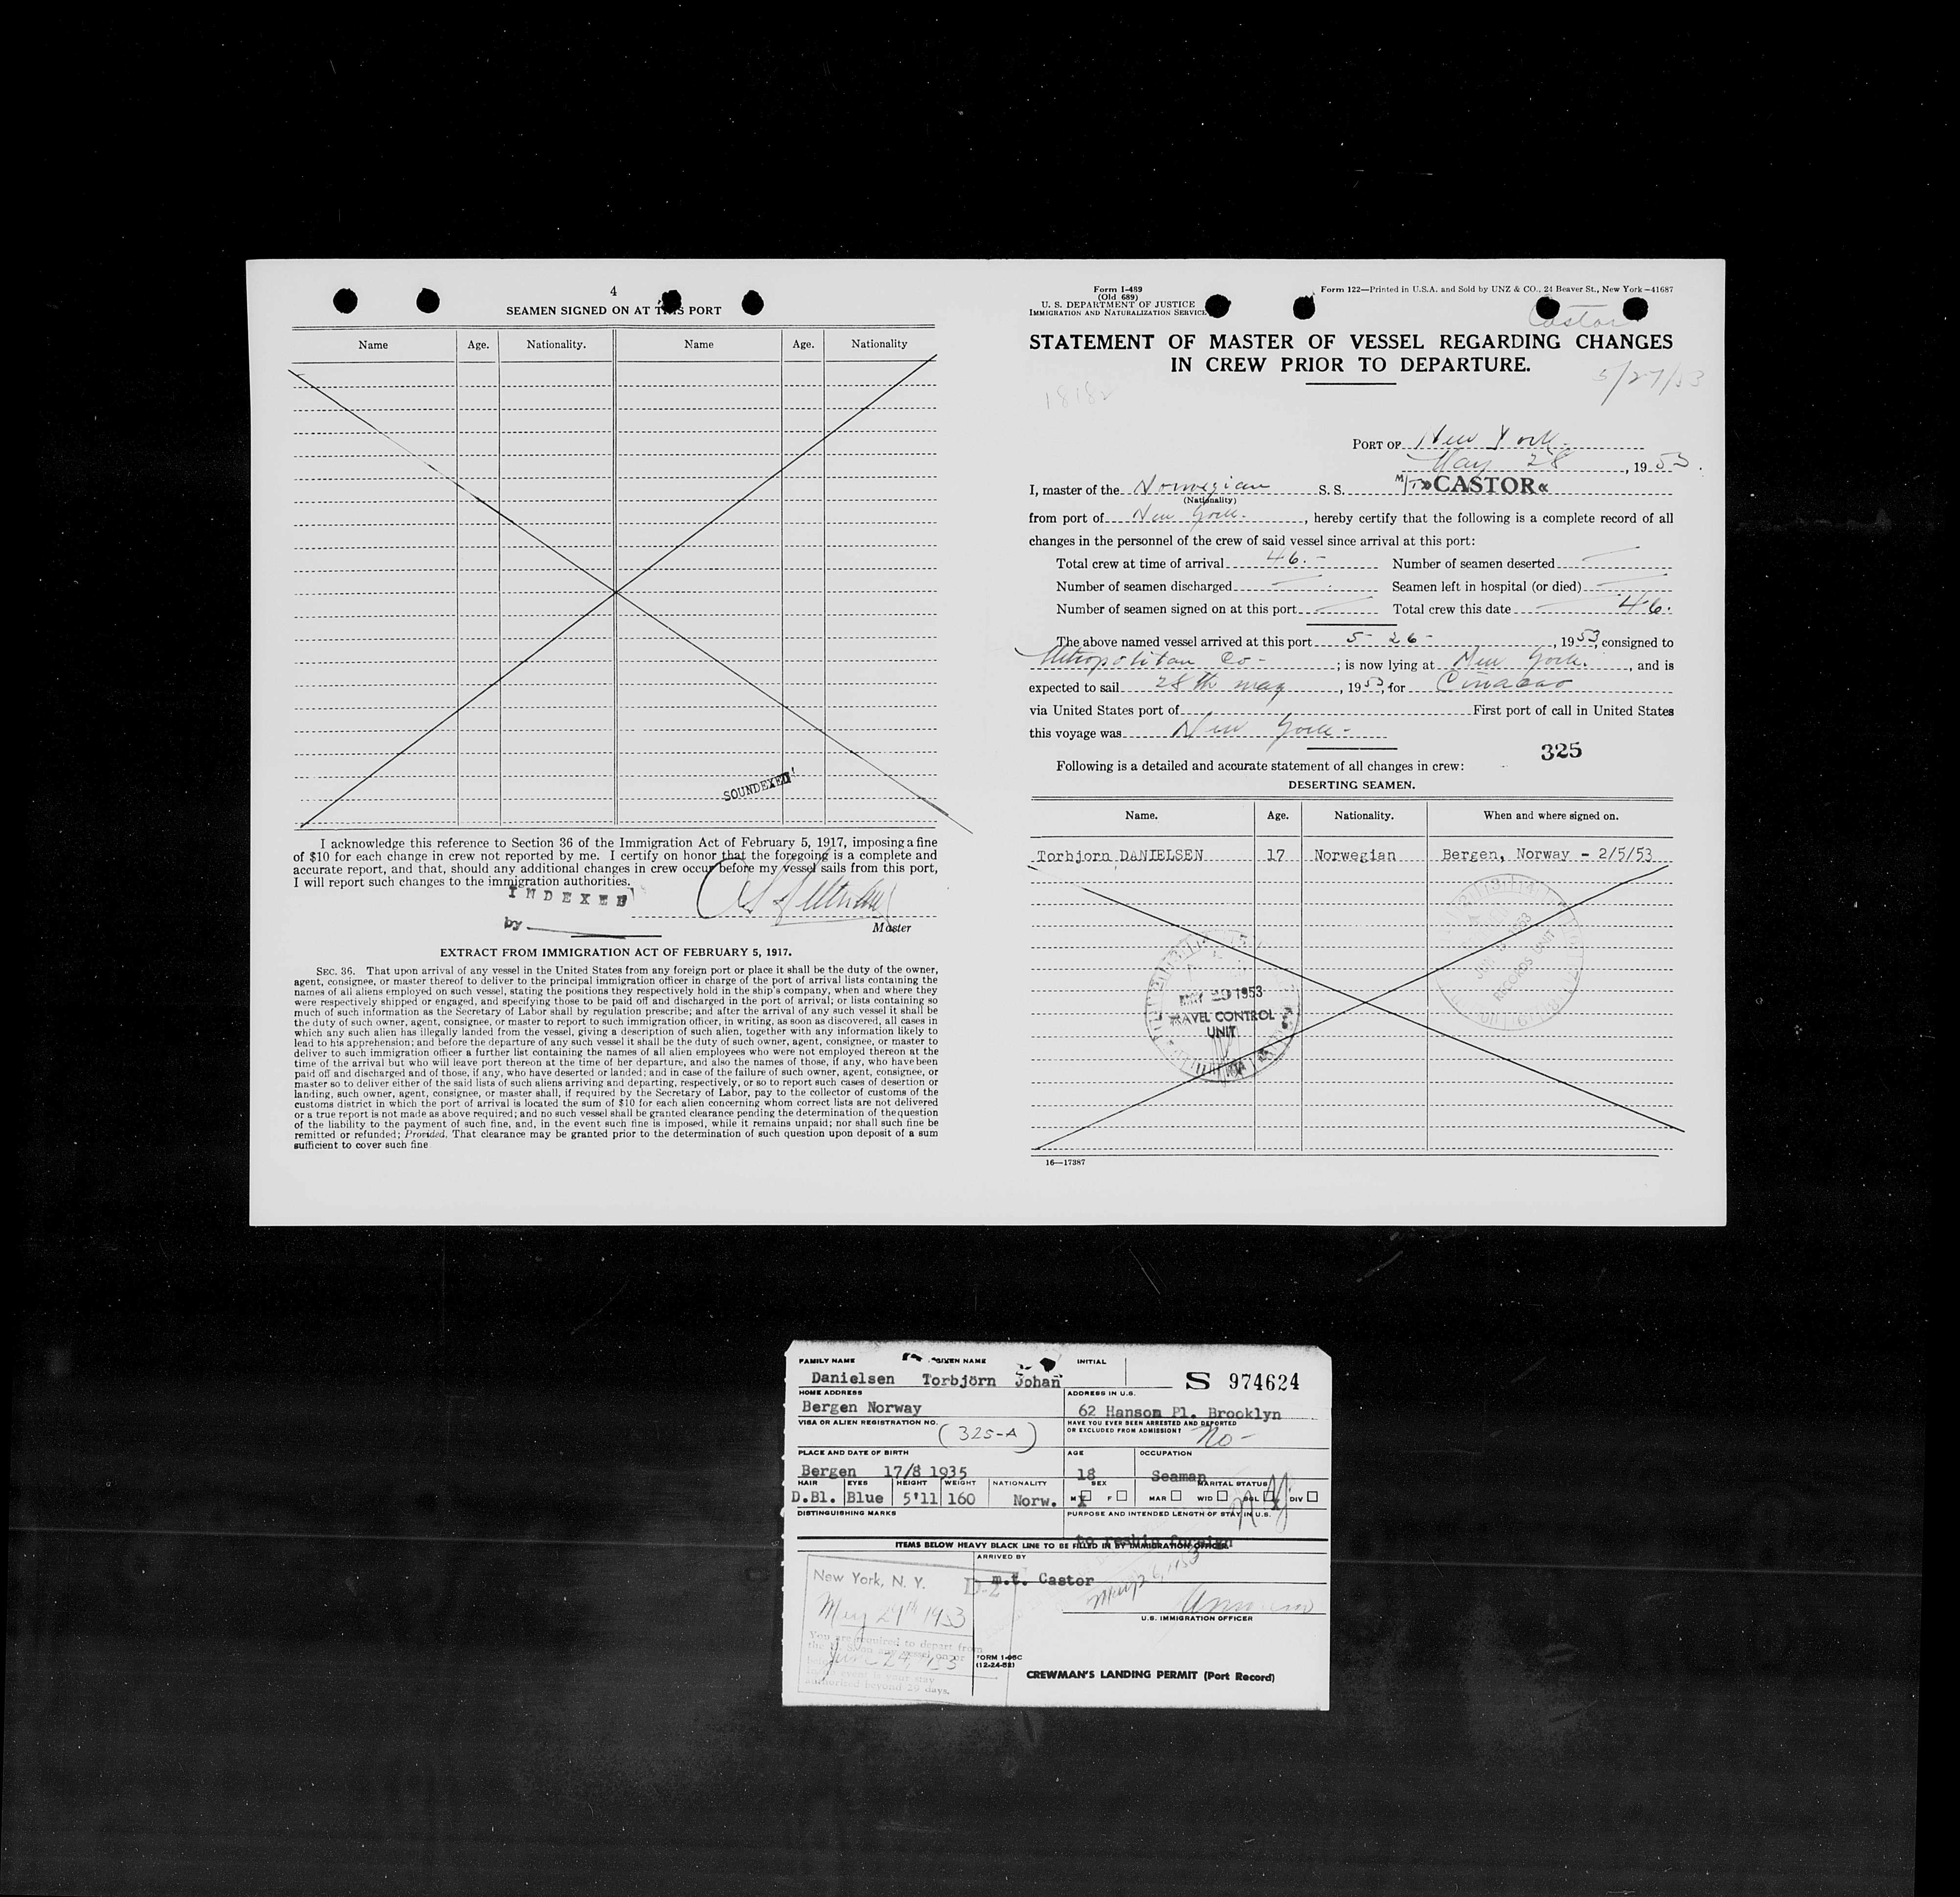 4
SEAMEN SIGNED ON AT THIS PORT
Name Age. Nationality. Name Age. Nationality
SOUNDEXED
I acknowledge this reference to Section 36 of the Immigration Act of February 5, 1917, imposing a fine
of $10 for each change in crew not reported by me. I certify on honor that the foregoing is a complete and
accurate report, and that, should any additional changes in crew occur before my vessel sails from this port,
I will report such changes to the immigration authorities.
INDEXED
by
Master
EXTRACT FROM IMMIGRATION ACT OF FEBRUARY 5, 1917.
SEC. 36. That upon arrival of any vessel in the United States from any foreign port or place it shall be the duty of the owner,
agent, consignee, or master thereof to deliver to the principal immigration officer in charge of the port of arrival lists containing the
names of all aliens employed on such vessel, stating the positions they respectively hold in the ship's company, when and where they
were respectively shipped or engaged, and specifying those to be paid off and discharged in the port of arrival; or lists containing so
much of such information as the Secretary of Labor shall by regulation prescribe; and after the arrival of any such vessel it shall be
the duty of such owner, agent, consignee, or master to report to such immigration officer, in writing, as soon as discovered, all cases in
which any such alien has illegally landed from the vessel, giving a description of such alien, together with any information likely to
lead to his apprehension; and before the departure of any such vessel it shall be the duty of such owner, agent, consignee, or master to
deliver to such immigration officer a further list containing the names of all alien employees who were not employed thereon at the
time of the arrival but who will leave port thereon at the time of her departure, and also the names of those, if any, who have been
paid off and discharged and of those, if any, who have deserted or landed; and in case of the failure of such owner, agent, consignee, or
master so to deliver either of the said lists of such aliens arriving and departing, respectively, or so to report such cases of desertion or
landing, such owner, agent, consignee, or master shall, if required by the Secretary of Labor, pay to the collector of customs of the
customs district in which the port of arrival is located the sum of $10 for each alien concerning whom correct lists are not delivered
or a true report is not made as above required; and no such vessel shall be granted clearance pending the determination of the question
of the liability to the payment of such fine, and, in the event such fine is imposed, while it remains unpaid; nor shall such fine be
remitted or refunded; Provided, That clearance may be granted prior to the determination of such question upon deposit of a sum
sufficient to cover such fine
Form I-489
(Old 689)
U. S. DEPARTMENT OF JUSTICE
IMMIGRATION AND NATURALIZATION SERVICE
Form 122—Printed in U.S.A. and Sold by UNZ & CO., 24 Beaver St., New York—41687
Castor
STATEMENT OF MASTER OF VESSEL REGARDING CHANGES
IN CREW PRIOR TO DEPARTURE.
5/27/53
18182
PORT OF New York.
May 28, 1953.
I, master of the Norwegian S. S. M/T »CASTOR«
(Nationality)
from port of New York., hereby certify that the following is a complete record of all
changes in the personnel of the crew of said vessel since arrival at this port:
Total crew at time of arrival 46.- Number of seamen deserted
Number of seamen discharged Seamen left in hospital (or died)
Number of seamen signed on at this port Total crew this date 46.
The above named vessel arrived at this port 5-26-, 1953, consigned to
Metropolitan Co-; is now lying at New York., and is
expected to sail 28th may, 1953, for
via United States port of First port of call in United States
this voyage was New York-
325
Following is a detailed and accurate statement of all changes in crew:
DESERTING SEAMEN.
Name. Age. Nationality. When and where signed on.
Torbjorn DANIELSEN 17 Norwegian Bergen, Norway - 2/5/53
1953
RECORDS UNIT
MAY 29 1953
TRAVEL CONTROL
UNIT
16—17387
FAMILY NAME GIVEN NAME INITIAL
Danielsen Torbjörn Johan
S 974624
HOME ADDRESS ADDRESS IN U.S.
Bergen Norway 62 Hanson Pl. Brooklyn
VISA OR ALIEN REGISTRATION NO. HAVE YOU EVER BEEN ARRESTED AND DEPORTED
OR EXCLUDED FROM ADMISSION?
(325-A) No-
PLACE AND DATE OF BIRTH AGE OCCUPATION
Bergen 17/8 1935 18 Seaman
HAIR EYES HEIGHT WEIGHT NATIONALITY SEX MARITAL STATUS
D.Bl. Blue 5'11 160 Norw. M X F MAR WID SGL X DIV
DISTINGUISHING MARKS PURPOSE AND INTENDED LENGTH OF STAY IN U.S.
to reship foreign
ITEMS BELOW HEAVY BLACK LINE TO BE FILLED IN BY IMMIGRATION OFFICER
ARRIVED BY
m.t. Castor
D-2
May 26, 1953
U.S. IMMIGRATION OFFICER
New York, N. Y.
May 29th 1953
You are required to depart from
June 24, '53
authorized beyond 29 days.
FORM I-95C
(12-24-52)
CREWMAN'S LANDING PERMIT (Port Record)